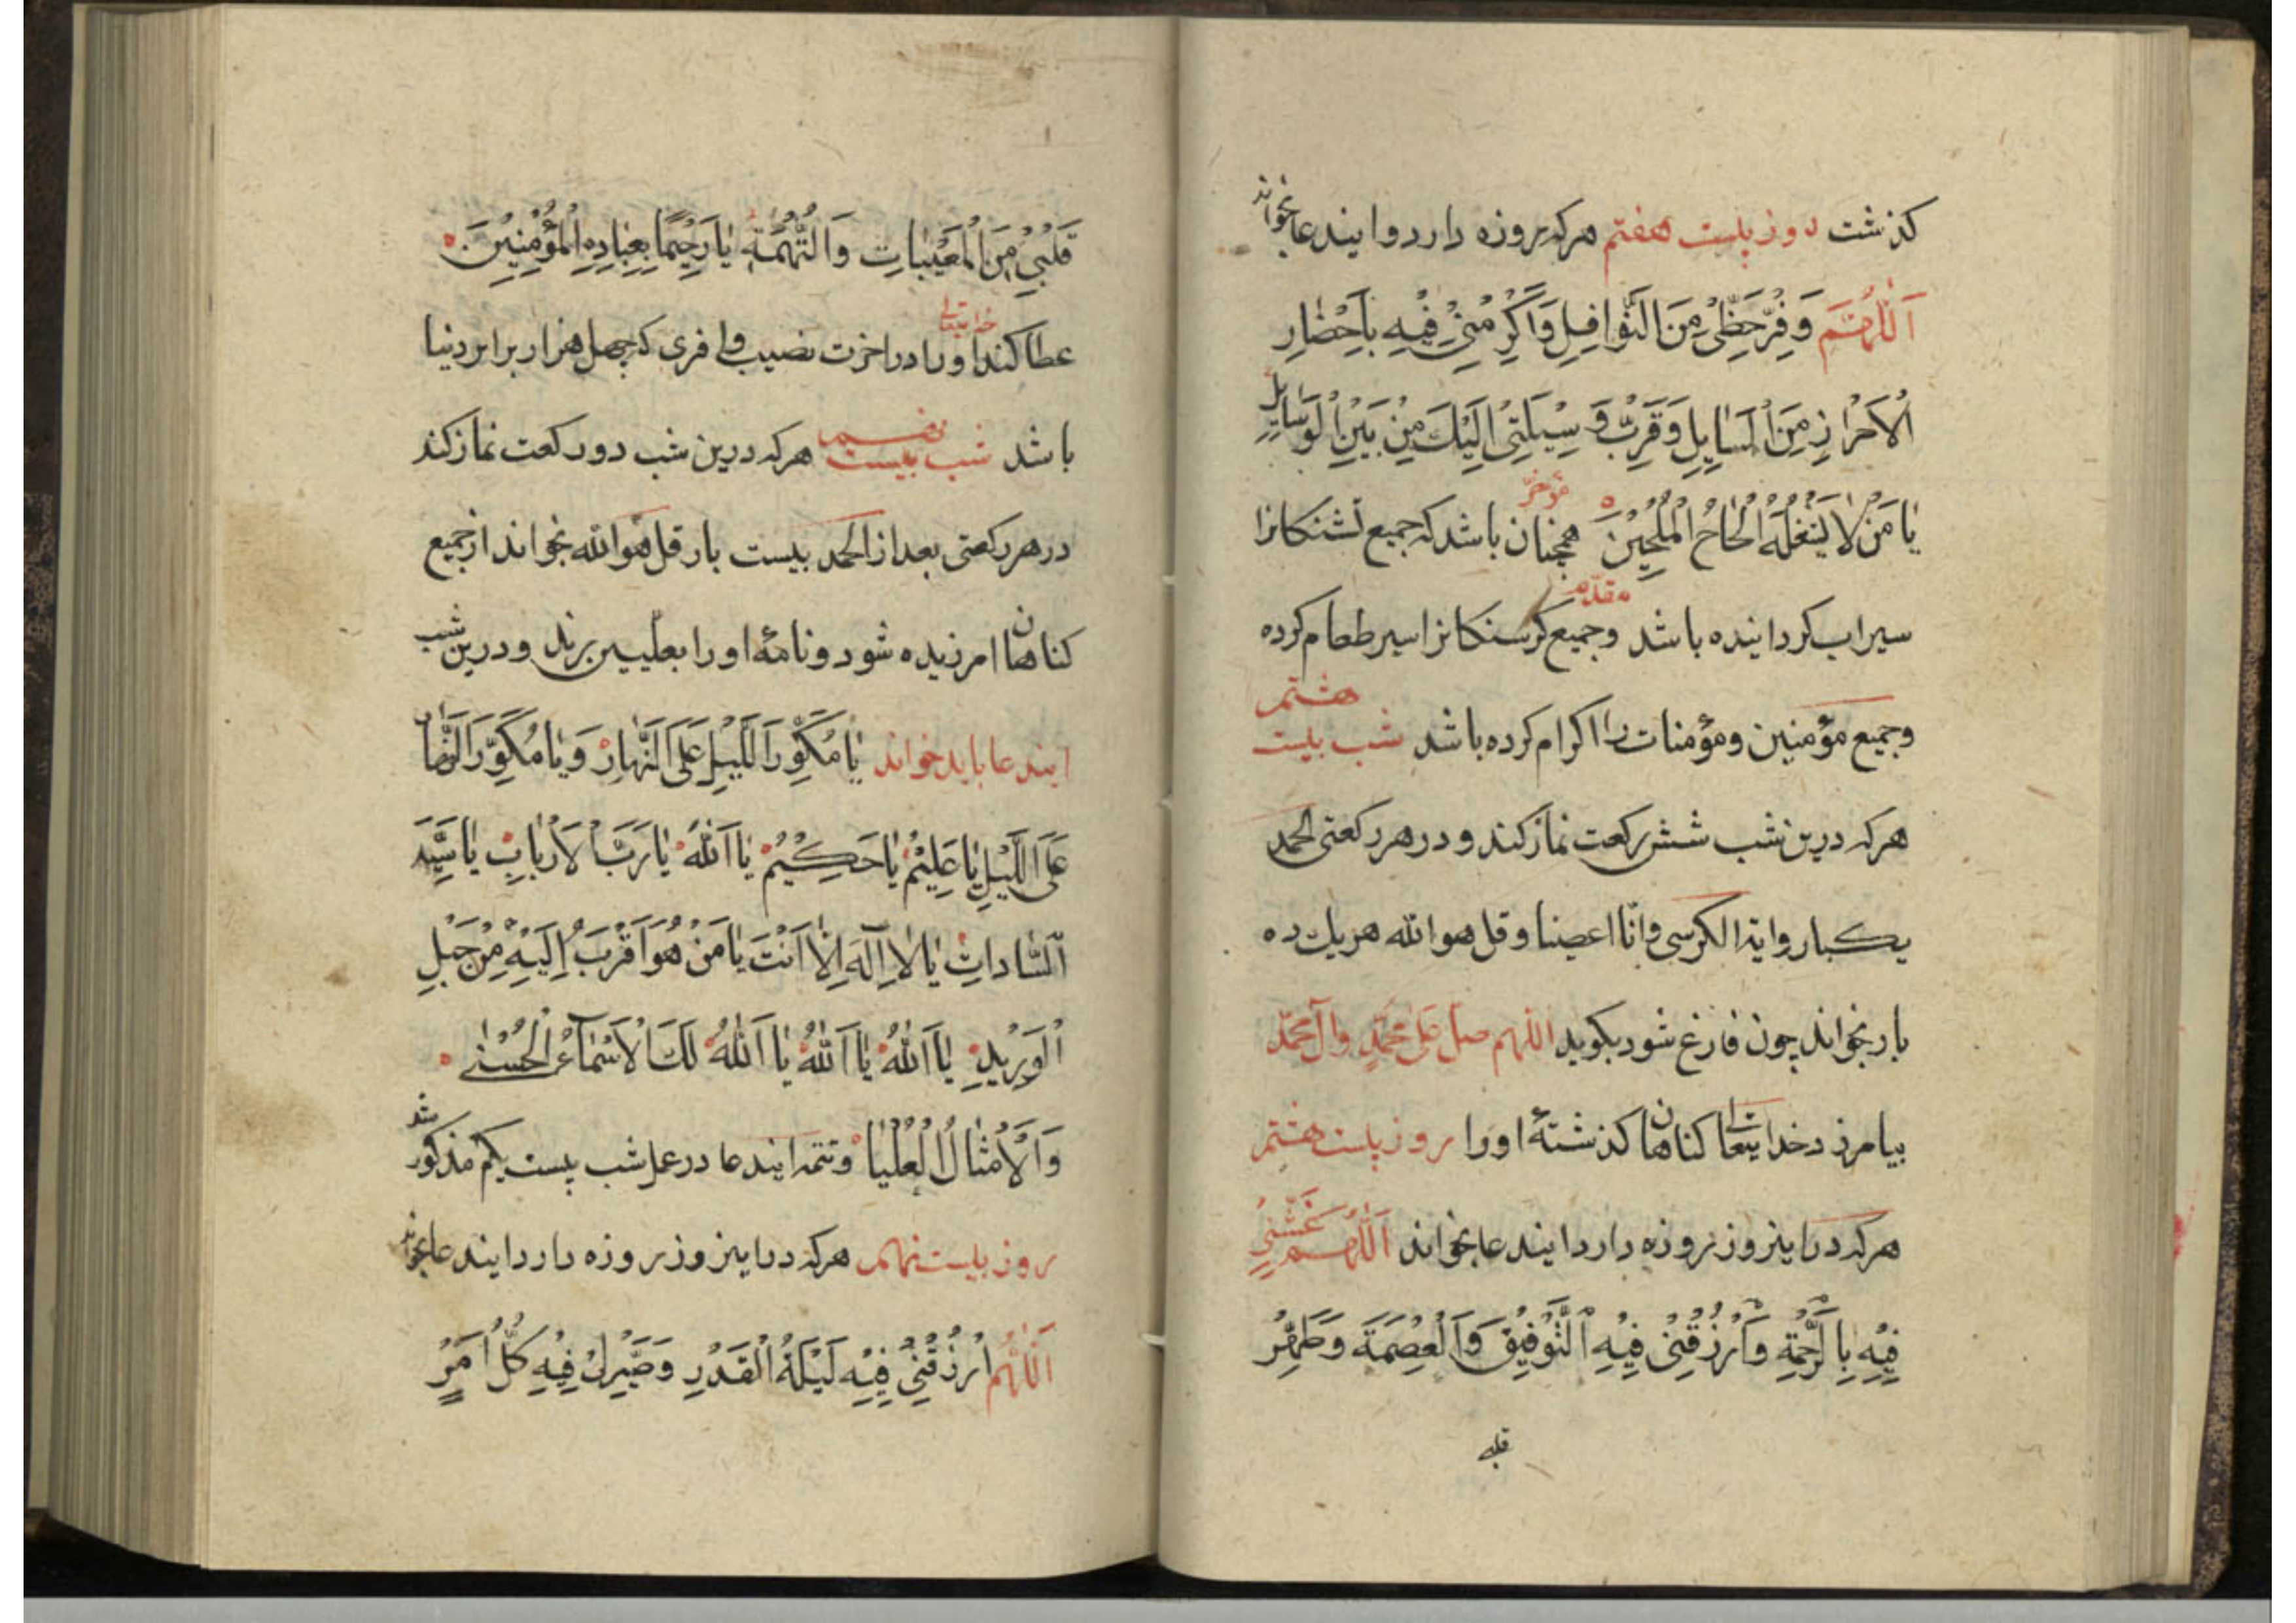 کذشت روز بیست هفتم هرکه روزه دارد و ایندعا بخواند
اَللّٰهُمَّ وَفِّرْ حَظّٖی مِنَ النَّوٰافِلِ وَاَکْرِمْنٖی فٖیهِ بِاَحْضٰارِ
الْاَحْرٰازِ مِنَ الْمَسٰایِلِ وَقَرِّبْ وَسٖیلَتٖی اِلَیْكَ مِنْ بَیْنِ الْوَسٰایِلِ
یٰا مَنْ لٰا یَشْغَلُهُ اِلْحٰاحُ الْمُلِحّٖینَ مؤخر همچنان باشد که جمیع تشنکانرا
سیراب کردانیده باشد مقدم وجمیع کرسنکانرا سیر طعام کرده
وجمیع مؤمنین ومؤمنات را اکرام کرده باشد شب بیست هشتم
هرکه درین شب شش رکعت نماز کند و در هر رکعتی الحمد
یکبار و ایة الکرسی وانّا اعطینا وقل هوالله هریك ده
بار بخواند چون فارغ شود بکوید اللهم صل علی محمّدٍ وآل محمّد
بیامرزد خدایتعالی کناهان کذشتهٔ اورا روز بیست هشتم
هرکه دراینروز روزه دارد ایندعا بخواند اَللّٰهُمَّ غَشِّنٖی
فٖیهِ بِالرَّحْمَةِ وَارْزُقْنٖی فٖیهِ التَّوْفٖیقَ وَالْعِصْمَةَ وَطَهِّرْ
قلبی
قَلْبٖی مِنَ الْمَعٖیبٰاتِ وَالتُّهْمَةِ یٰا رَحٖیمًا بِعِبٰادِهِ الْمُؤْمِنٖینَ
عطا کند خدایتعالی اورا در اخرت نصیب وافری که چهل هزار برابر دنیا
باشد شب بیست نهم هرکه درین شب دو رکعت نماز کند
در هر رکعتی بعد از الحمد بیست بار قل هوالله بخواند از جمیع
کناهان امرزیده شود ونامهٔ اورا بعلیین برند ودرین شب
ایندعا باید خواند یٰا مُکَوِّرَ اللَّیْلِ عَلَی النَّهٰارِ وَیٰا مُکَوِّرَ النَّهٰارِ
عَلَی اللَّیْلِ یٰا عَلٖیمُ یٰا حَکٖیمُ یٰا اَللّٰهُ یٰا رَبَّ الْاَرْبٰابِ یٰا سَیِّدَ
السّٰادٰاتِ یٰا لٰا اِلٰهَ اِلّٰا اَنْتَ یٰا مَنْ هُوَ اَقْرَبُ اِلَیْهِ مِنْ حَبْلِ
الْوَرٖیدِ یٰا اَللّٰهُ یٰا اَللّٰهُ یٰا اَللّٰهُ لَكَ الْاَسْمٰآءُ الْحُسْنٰی
وَالْاَمْثٰالُ الْعُلْیٰا وتتمه ایندعا در عمل شب بیست یکم مذکور شد
روز بیست نهم هرکه دراینروز روزه دارد ایندعا بخواند
اَللّٰهُمَّ ارْزُقْنٖی فٖیهِ لَیْلَةَ الْقَدْرِ وَصَیِّرْ لٖی فٖیهِ کُلَّ اَمْرٍ